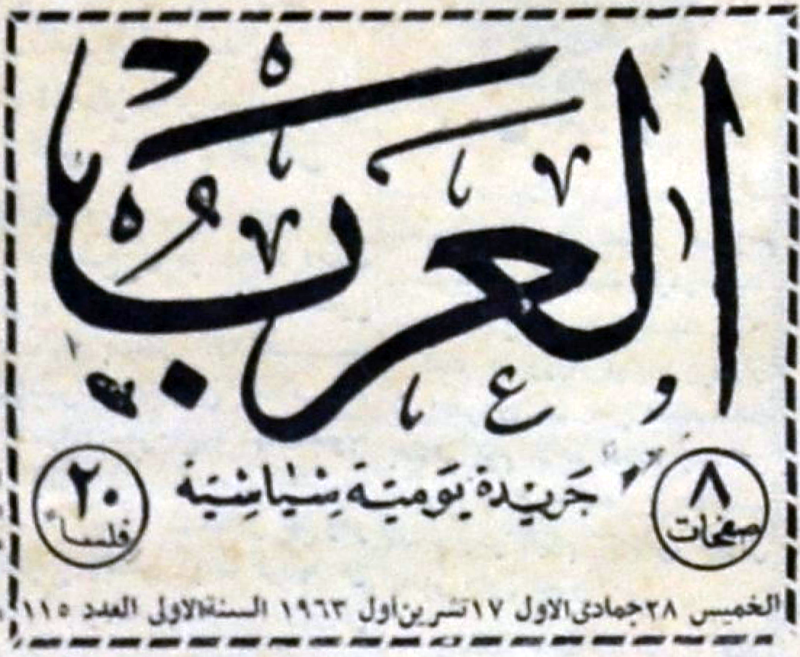 العرب
٨ صفحات
جريدة يومية سياسية
٢٠ فلسا
الخميس ٢٨ جمادى الاول ١٧ تشرين اول ١٩٦٣ السنة الاولى العدد ١١٥